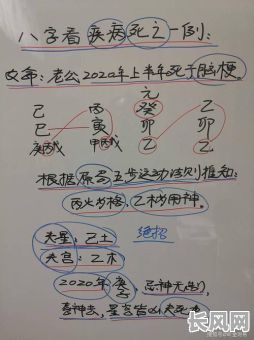 八字看疾病死亡一例:
女命:老公2020年上半年死于脑梗
元
己 丙 癸 乙
巳 寅 卯 卯
庚丙戊 甲丙戊 乙 乙
根据原局五步运动法则推知:
丙火为格,乙木为用神。
夫星:己土 绝招
夫宫:乙木
2020年庚子,忌神无制,
喜神去,星宫皆凶
长风网